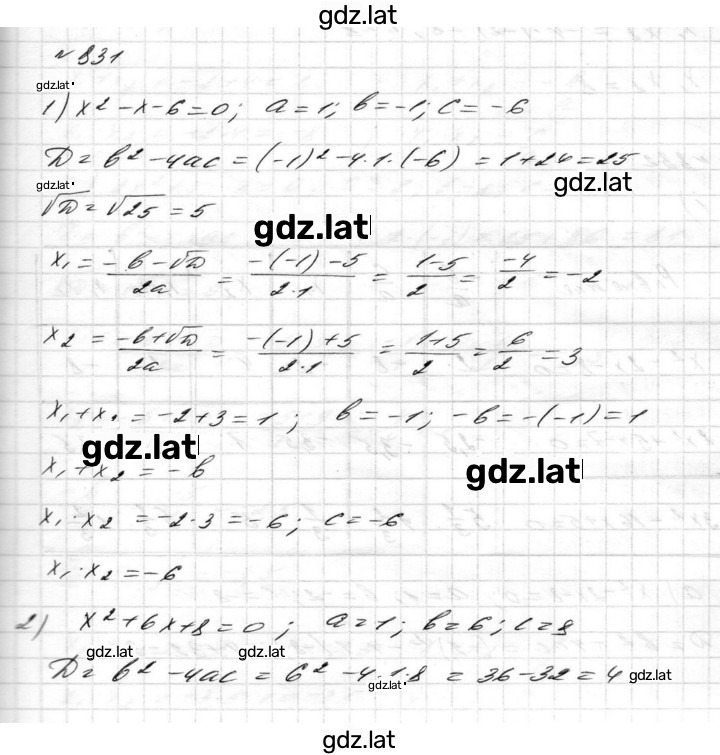 gdz.lat
№ 831
gdz.lat
1) x² - x - 6 = 0; a = 1; b = -1; c = -6
D = b² - 4ac = (-1)² - 4·1·(-6) = 1 + 24 = 25
gdz.lat gdz.lat
√D = √25 = 5
gdz.lat
x₁ = (-b - √D)/(2a) = (-(-1) - 5)/(2·1) = (1 - 5)/2 = -4/2 = -2
x₂ = (-b + √D)/(2a) = (-(-1) + 5)/(2·1) = (1 + 5)/2 = 6/2 = 3
x₁ + x. = -2 + 3 = 1; b = -1; -b = -(-1) = 1
gdz.lat gdz.lat
x₁ + x₂ = -b
x₁ · x₂ = -2·3 = -6; c = -6
x₁ · x₂ = -6
2) x² + 6x + 8 = 0; a = 1; b = 6; c = 8
gdz.lat gdz.lat
D = b² - 4ac = 6² - 4·1·8 = 36 - 32 = 4 gdz.lat
gdz.lat
gdz.lat